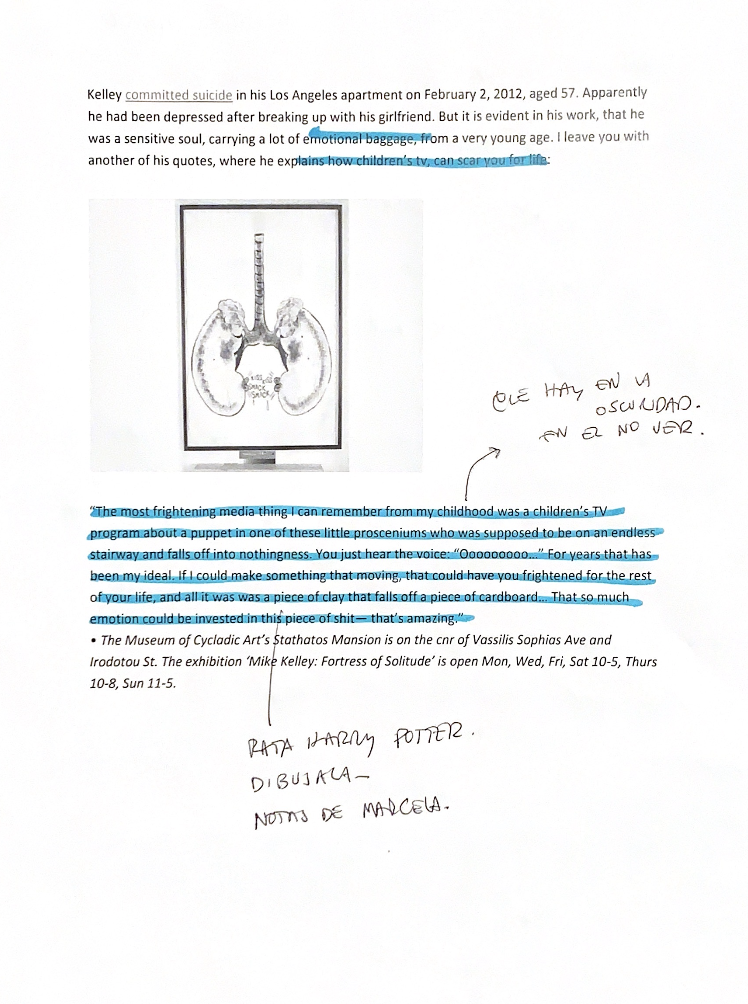 Kelley committed suicide in his Los Angeles apartment on February 2, 2012, aged 57. Apparently
he had been depressed after breaking up with his girlfriend. But it is evident in his work, that he
was a sensitive soul, carrying a lot of emotional baggage, from a very young age. I leave you with
another of his quotes, where he explains how children's tv, can scar you for life:
KISS KISS
SMACK
SMACK
QUE HAY EN LA
OSCURIDAD.
EN EL NO VER.
“The most frightening media thing I can remember from my childhood was a children's TV
program about a puppet in one of these little prosceniums who was supposed to be on an endless
stairway and falls off into nothingness. You just hear the voice: “Ooooooooo...” For years that has
been my ideal. If I could make something that moving, that could have you frightened for the rest
of your life, and all it was was a piece of clay that falls off a piece of cardboard... That so much
emotion could be invested in this piece of shit— that's amazing.”
• The Museum of Cycladic Art's Stathatos Mansion is on the cnr of Vassilis Sophias Ave and
Irodotou St. The exhibition ‘Mike Kelley: Fortress of Solitude’ is open Mon, Wed, Fri, Sat 10-5, Thurs
10-8, Sun 11-5.
RATA HARRY POTTER.
DIBUJALA—
NOTAS DE MARCELA.